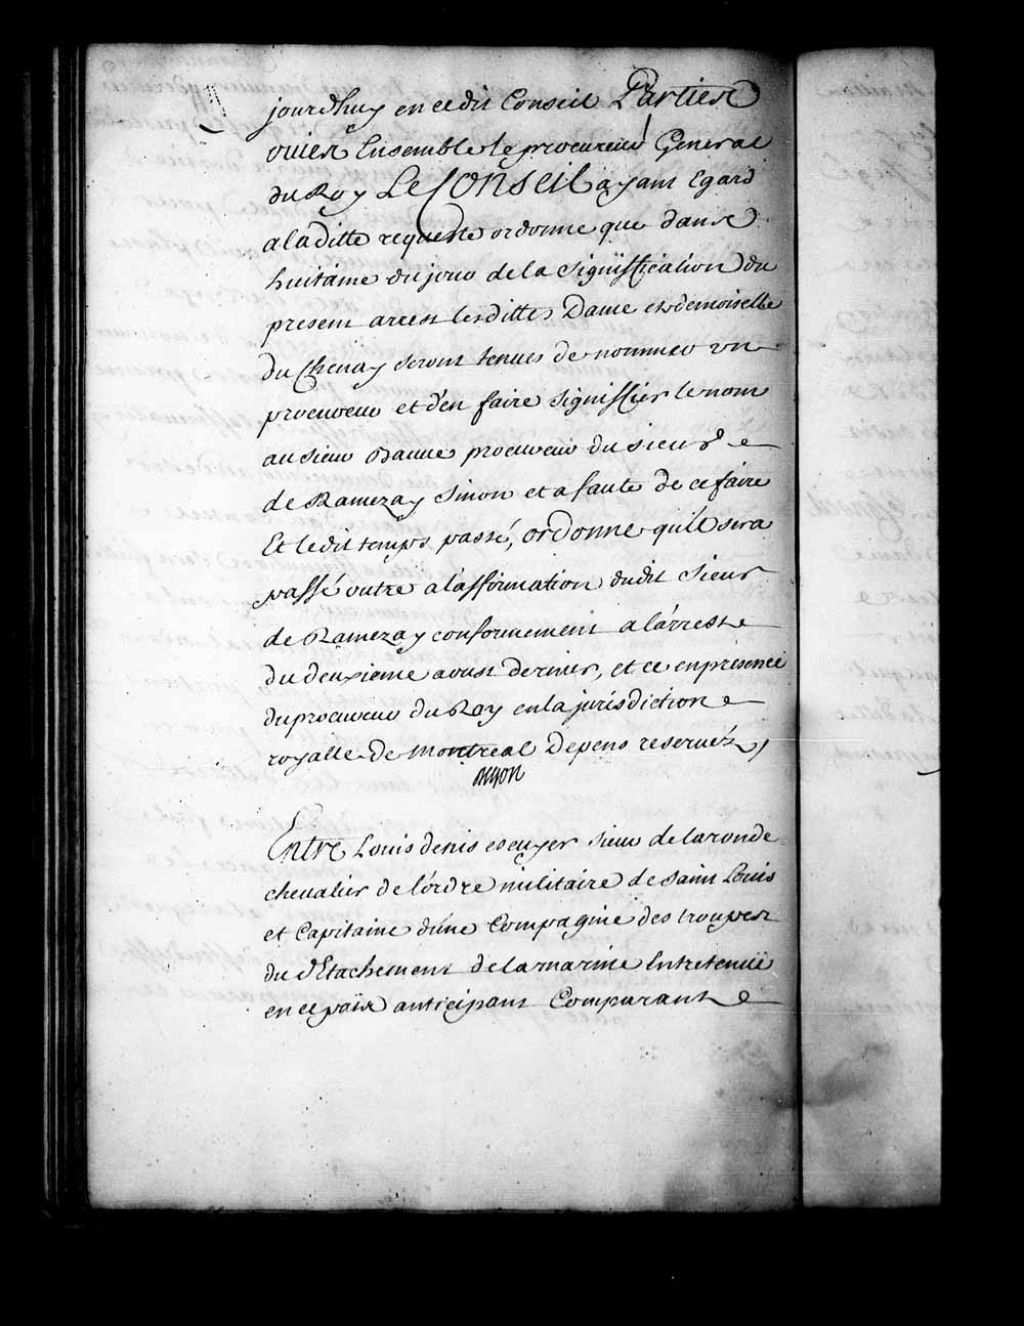 jourdhuy en cedit Conseil Parties
ouies Ensemble le procureur General
du Roy Le Conseil ayant Egard
a la ditte requeste ordonne que dans
huitaine du jour de la signiffication du
present arrest lesdittes Dame et demoiselle
du Chenay seront tenues de nommer un
procureur et d'en faire signiffier le nom
au sieur procureur du sieur
de Ramezay sinon et a faute de ce faire
Et ledit temps passé, ordonne qu'il sera
passé outre a l'affirmation dudit sieur
de Ramezay conformement a l'arrest
du deuxieme aoust dernier, et ce en presence
du procureur du Roy en la jurisdiction
royalle de Montreal Depens reservéz,
Entre Louis denis escuyer sieur de la ronde
chevalier de l'ordre militaire de saint Louis
et Capitaine d'une Compagnie des troupes
du dEtachement de la marine Entretenüe
en ce païs anticipant Comparant